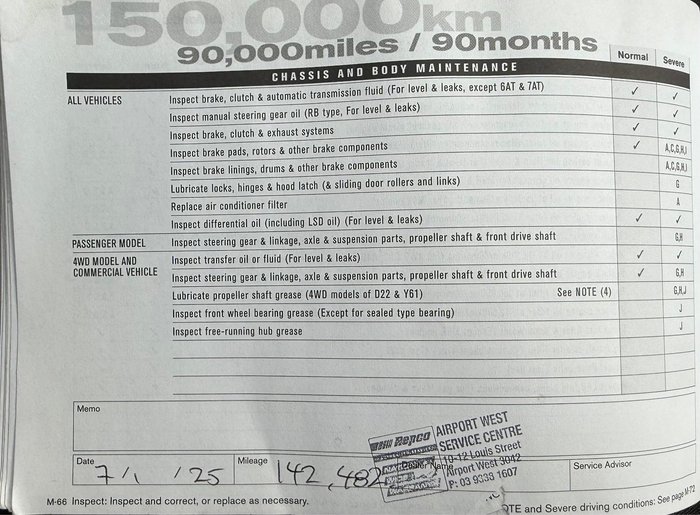 150,000km
90,000miles / 90months
Normal Severe
CHASSIS AND BODY MAINTENANCE
ALL VEHICLES Inspect brake, clutch & automatic transmission fluid (For level & leaks, except 6AT & 7AT) ✓ ✓
Inspect manual steering gear oil (RB type, For level & leaks) ✓ ✓
Inspect brake, clutch & exhaust systems ✓ ✓
Inspect brake pads, rotors & other brake components ✓ A,C,G,H,I
Inspect brake linings, drums & other brake components A,C,G,H,I
Lubricate locks, hinges & hood latch (& sliding door rollers and links) G
Replace air conditioner filter A
Inspect differential oil (including LSD oil) (For level & leaks) ✓ ✓
PASSENGER MODEL Inspect steering gear & linkage, axle & suspension parts, propeller shaft & front drive shaft G,H
4WD MODEL AND Inspect transfer oil or fluid (For level & leaks) ✓ ✓
COMMERCIAL VEHICLE Inspect steering gear & linkage, axle & suspension parts, propeller shaft & front drive shaft ✓ G,H
Lubricate propeller shaft grease (4WD models of D22 & Y61) See NOTE (4) G,H,J
Inspect front wheel bearing grease (Except for sealed type bearing) J
Inspect free-running hub grease J
Memo
Repco AIRPORT WEST
SERVICE CENTRE
10-12 Louis Street
Airport West 3042
P: 03 9338 1607
Date 7/1/25 Mileage 142,482 Dealer Name Service Advisor
M-66 Inspect: Inspect and correct, or replace as necessary. OTE and Severe driving conditions: See page M-72